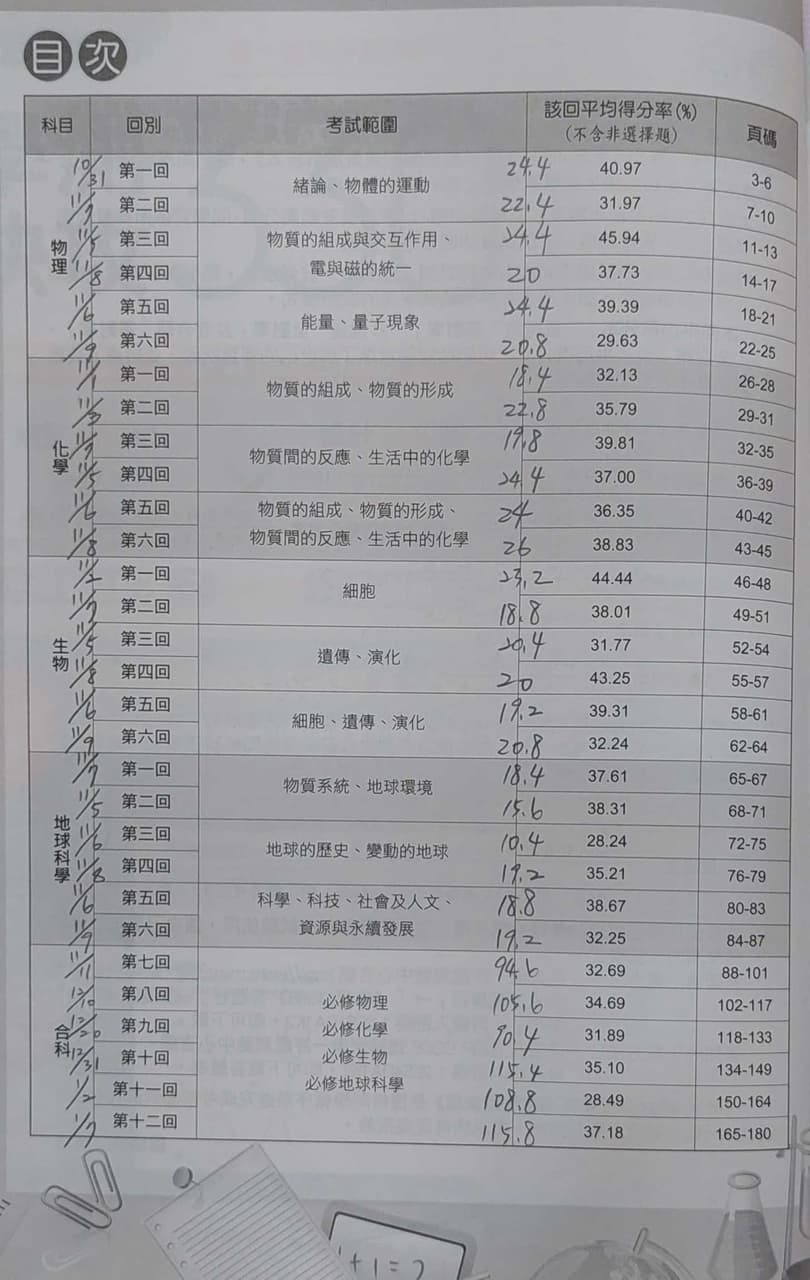 目次
科目 回別 考試範圍 該回平均得分率(%) (不含非選擇題) 頁碼
物理
10/31 第一回 緒論、物體的運動 24.4 40.97 3-6
第二回 22.4 31.97 7-10
11/5 第三回 物質的組成與交互作用、電與磁的統一 24.4 45.94 11-13
11/8 第四回 20 37.73 14-17
11/6 第五回 能量、量子現象 24.4 39.39 18-21
11/9 第六回 20.8 29.63 22-25
化學
11/1 第一回 物質的組成、物質的形成 18.4 32.13 26-28
11/3 第二回 22.8 35.79 29-31
第三回 物質間的反應、生活中的化學 19.8 39.81 32-35
11/5 第四回 24.4 37.00 36-39
11/6 第五回 物質的組成、物質的形成、物質間的反應、生活中的化學 24 36.35 40-42
11/8 第六回 26 38.83 43-45
生物
11/2 第一回 細胞 23.2 44.44 46-48
第二回 18.8 38.01 49-51
11/5 第三回 遺傳、演化 20.4 31.77 52-54
11/8 第四回 20 43.25 55-57
11/6 第五回 細胞、遺傳、演化 19.2 39.31 58-61
11/9 第六回 20.8 32.24 62-64
地球科學
第一回 物質系統、地球環境 18.4 37.61 65-67
11/5 第二回 15.6 38.31 68-71
11/6 第三回 地球的歷史、變動的地球 10.4 28.24 72-75
11/8 第四回 19.2 35.21 76-79
11/6 第五回 科學、科技、社會及人文、資源與永續發展 18.8 38.67 80-83
11/9 第六回 19.2 32.25 84-87
合科
11/11 第七回 94.6 32.69 88-101
第八回 必修物理 105.6 34.69 102-117
第九回 必修化學 90.4 31.89 118-133
12/31 第十回 必修生物 115.4 35.10 134-149
1/2 第十一回 必修地球科學 108.8 28.49 150-164
1/7 第十二回 115.8 37.18 165-180
1+1=2